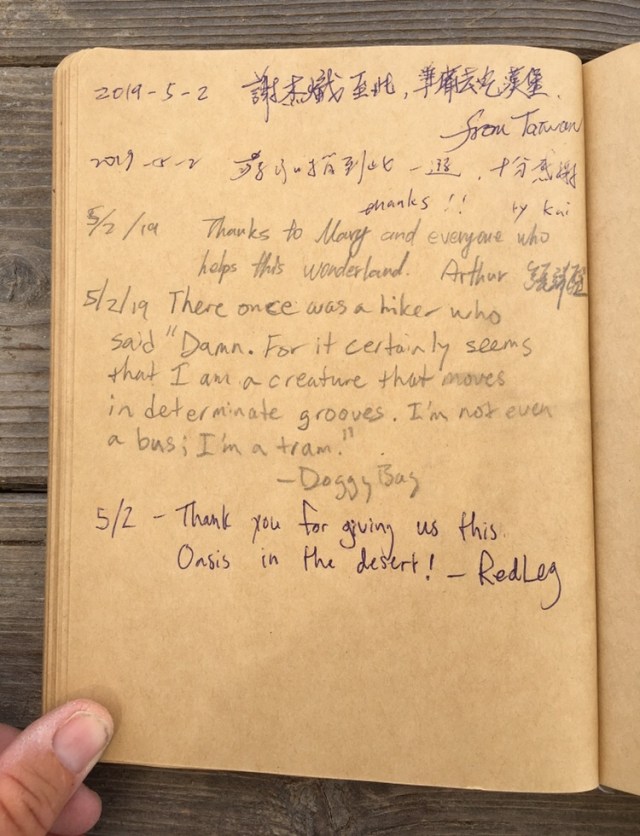 2019-5-2 謝杰 至此, 準備去吃漢堡.
from Taiwan
2019-5-2 到此一遊, 十分感謝
thanks !! by Kai
5/2/19 Thanks to Mary and everyone who
helps this wonderland. Arthur
5/2/19 There once was a hiker who
said "Damn. For it certainly seems
that I am a creature that moves
in determinate grooves. I'm not even
a bus; I'm a tram."
-Doggy Bag
5/2 - Thank you for giving us this
Oasis in the desert! - RedLeg